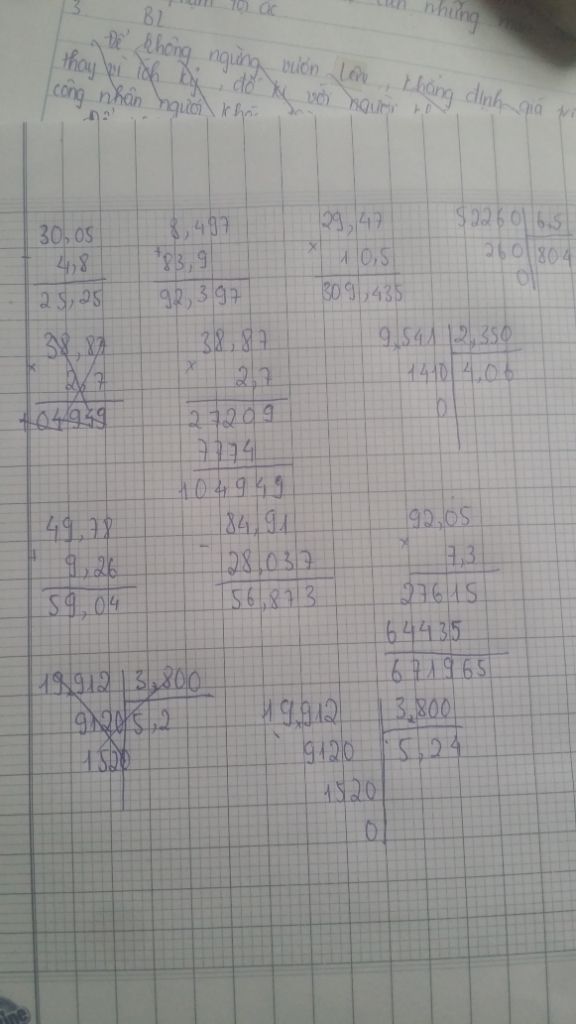 3 B2
Để không ngừng vươn lên, khẳng định giá
thay vì ích kỷ, đố kỵ với người
công nhân người
30,05 8,497 29,47 52260 6,5
- 4,8 + 83,9 × 10,5 260 804
25,25 92,397 309,435 0
38,87 38,87 9,541 2,350
× 2,7 × 2,7 1410 4,06
104949 27209 0
7774
104949
49,78 84,91 92,05
+ 9,26 - 28,037 × 7,3
59,04 56,873 27615
64435
671965
19,912 3,800 19,912 3,800
9120 5,2 9120 5,24
1520 1520
0